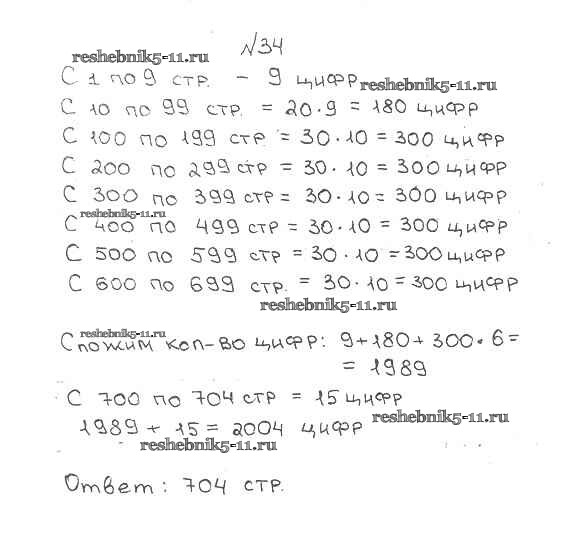 №34
reshebnik5-11.ru
С 1 по 9 стр. – 9 цифр
reshebnik5-11.ru
С 10 по 99 стр. = 20·9 = 180 цифр
С 100 по 199 стр = 30·10 = 300 цифр
С 200 по 299 стр = 30·10 = 300 цифр
С 300 по 399 стр = 30·10 = 300 цифр
reshebnik5-11.ru
С 400 по 499 стр = 30·10 = 300 цифр
С 500 по 599 стр = 30·10 = 300 цифр
С 600 по 699 стр. = 30·10 = 300 цифр
reshebnik5-11.ru
reshebnik5-11.ru
Сложим кол-во цифр: 9+180+300·6=
= 1989
С 700 по 704 стр = 15 цифр
reshebnik5-11.ru
1989 + 15 = 2004 цифр
reshebnik5-11.ru
Ответ: 704 стр.